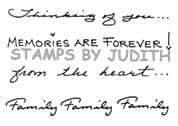 Thinking of you...
MEMORIES ARE FOREVER!
STAMPS BY JUDITH
from the heart...
Family Family Family